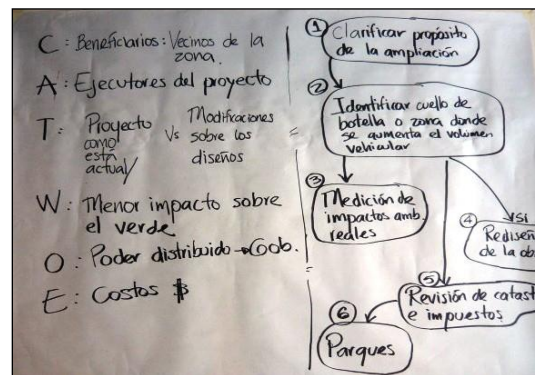 C: Beneficiarios: Vecinos de la
zona.
A: Ejecutores del proyecto
T: Proyecto
como
está
actual/
Vs
Modificaciones
sobre los
diseños
W: Menor impacto sobre
el verde
O: Poder distribuido → Gob.
E: Costos $
① Clarificar propósito
de la ampliación
② Identificar cuello de
botella o zona donde
se aumenta el volúmen
vehicular
③ Medición de
impactos amb.
reales
Si
④ Rediseño
de la
⑤ Revisión de
e impuestos
⑥ Parques